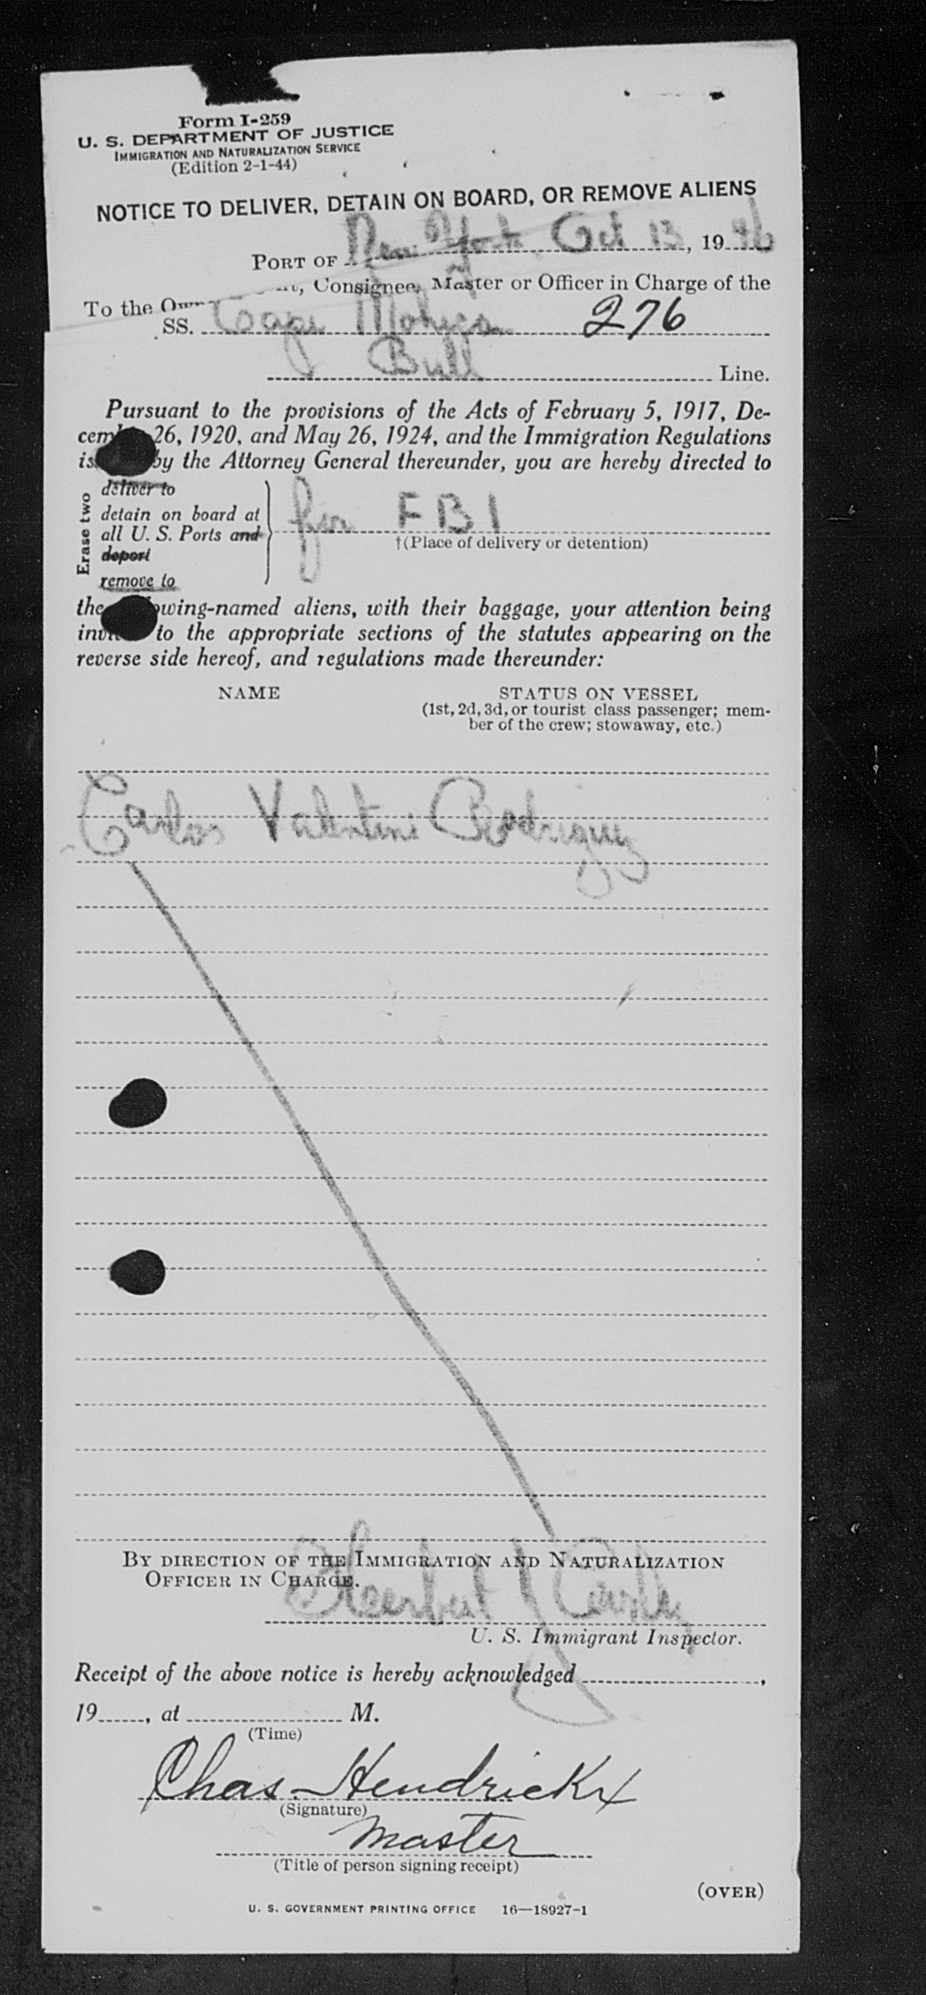 Form I-259
U. S. DEPARTMENT OF JUSTICE
IMMIGRATION AND NATURALIZATION SERVICE
(Edition 2-1-44)
NOTICE TO DELIVER, DETAIN ON BOARD, OR REMOVE ALIENS
PORT OF New York, Oct 13, 1946
To the , Consignee, Master or Officer in Charge of the
SS. 276
Bull Line.
Pursuant to the provisions of the Acts of February 5, 1917, De-
26, 1920, and May 26, 1924, and the Immigration Regulations
by the Attorney General thereunder, you are hereby directed to
Erase two
deliver to
detain on board at
all U. S. Ports and
deport
remove to
for FBI
†(Place of delivery or detention)
the owing-named aliens, with their baggage, your attention being
to the appropriate sections of the statutes appearing on the
reverse side hereof, and regulations made thereunder:
NAME STATUS ON VESSEL
(1st, 2d, 3d, or tourist class passenger; mem-
ber of the crew; stowaway, etc.)
Carlos Valentini Rodriguez
BY DIRECTION OF THE IMMIGRATION AND NATURALIZATION
OFFICER IN CHARGE.
Herbert J
U. S. Immigrant Inspector.
Receipt of the above notice is hereby acknowledged ,
19 , at M.
(Time)
Chas. Hendrickx
(Signature)
Master
(Title of person signing receipt)
(OVER)
U. S. GOVERNMENT PRINTING OFFICE 16—18927-1